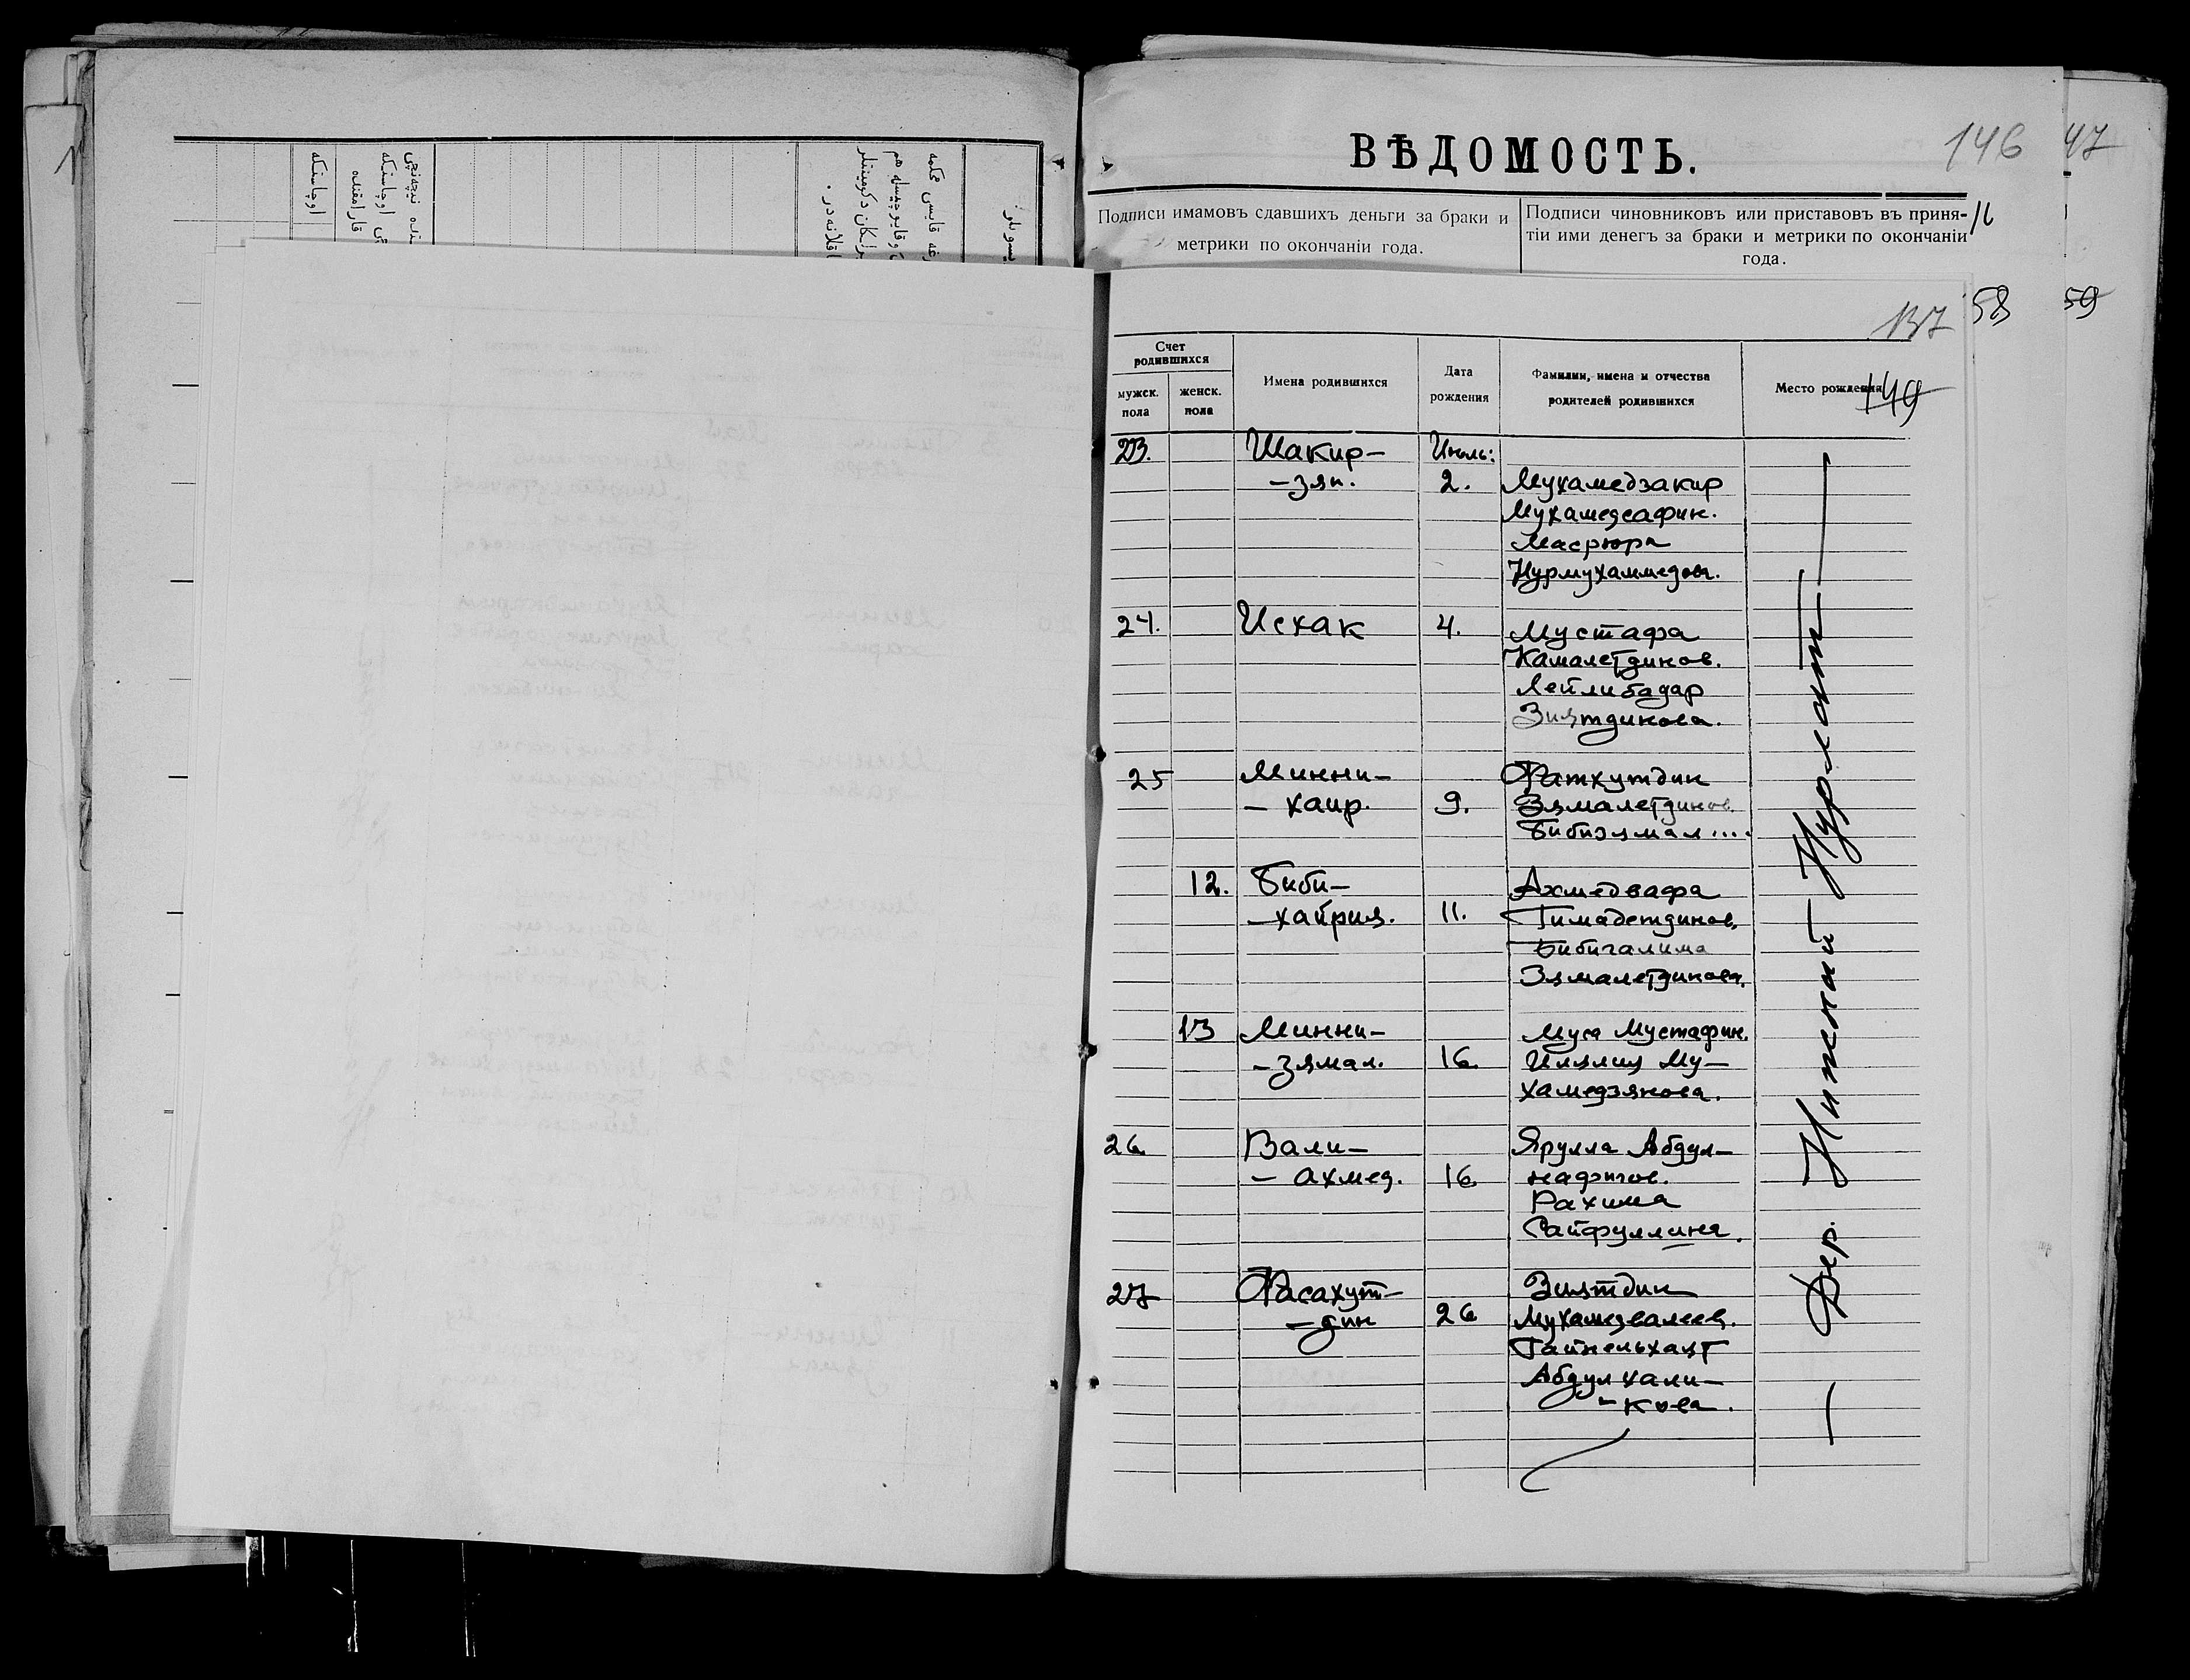 ВѢДОМОСТЬ.
146
47
Подписи имамовъ сдавшихъ деньги за браки и
метрики по окончаніи года.
Подписи чиновниковъ или приставовъ въ приня-
тіи ими денегъ за браки и метрики по окончаніи
года.
137
58
59
149
Счет
родившихся
мужск.
пола
женск.
пола
Имена родившихся
Дата
рождения
Фамилии, имена и отчества
родителей родившихся
Место рождения
23. Шакир- Июль:
-зян. 2. Мухамедзакир
Мухамедсафин.
Масрюра
Нурмухаммедова.
24. Исхак 4. Мустафа
Камалетдинов.
Лейлибадар
Зиятдинова.
25 Минни- Фатхутдин
- хаир. 9. Зямалетдинов
Бибизямал....
12. Биби- Ахмедвафа
-хайрия. 11. Гимадетдинов.
Бибигалима
Зямалетдинова.
13 Минни- Муса Мустафин.
-зямал. 16. Илялия Му-
хамедзянова.
26. Вали- Ярулла Абдул-
- ахмед. 16. нафигов.
Рахима
Сайфуллина.
27 Фасахут- Зиятдин
-дин 26 Мухамедвалеев.
Гайнельхаят
Абдулхали-
-кова.
Дер. Нижний Нурлат